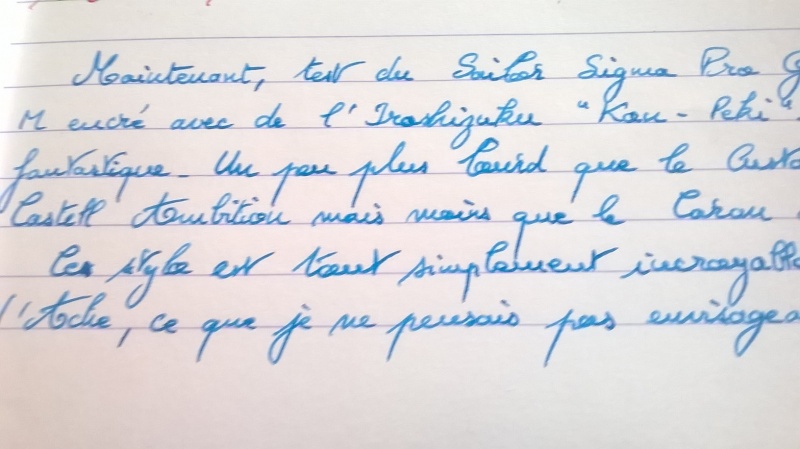 Maintenant, test du Sailor Sigma Pro G
M encré avec de l'Iroshizuku "Kon-Peki".
fantastique. Un peu plus lourd que le
Castell Ambition mais moins que le Caran
Ce style est tout simplement incroyable
l'Ache, ce que je ne pensais pas envisagea